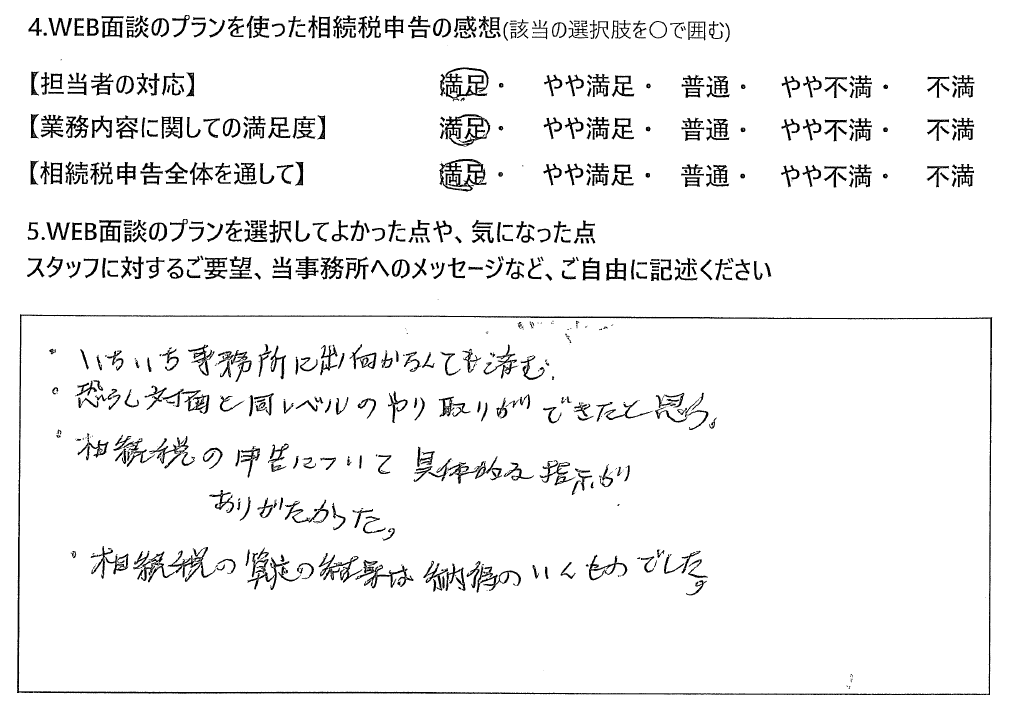 4.WEB面談のプランを使った相続税申告の感想(該当の選択肢を〇で囲む)
【担当者の対応】 満足・ やや満足・ 普通・ やや不満・ 不満
【業務内容に関しての満足度】 満足・ やや満足・ 普通・ やや不満・ 不満
【相続税申告全体を通して】 満足・ やや満足・ 普通・ やや不満・ 不満
5.WEB面談のプランを選択してよかった点や、気になった点
スタッフに対するご要望、当事務所へのメッセージなど、ご自由に記述ください
・いちいち事務所に出向かなくても済む.
・恐らく対面と同レベルのやり取りができたと思う。
・相続税の申告について具体的な指示があり
ありがたかった。
・相続税の算定の結果は納得のいくものでした。